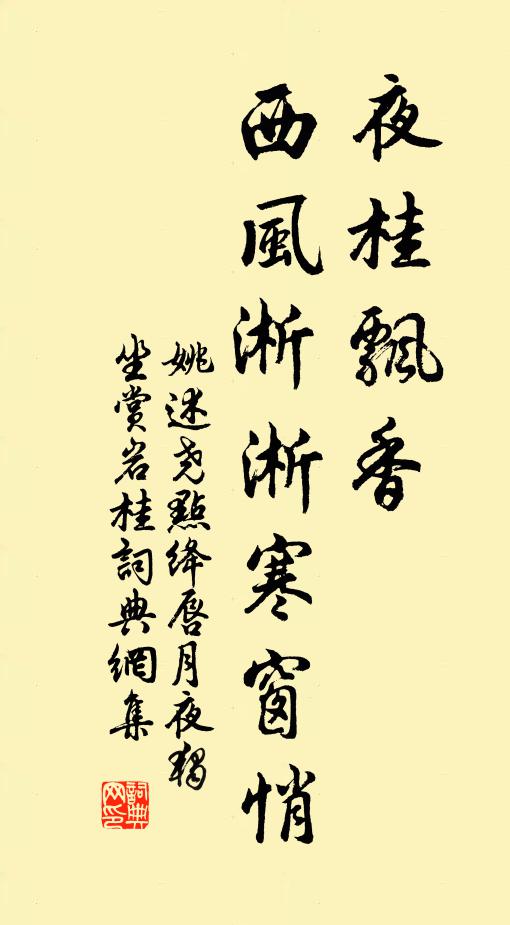 夜桂飄香
西風淅淅寒窗悄
姚述尧點绛唇月夜獨
坐赏岩桂詞典網集
詞典
网印